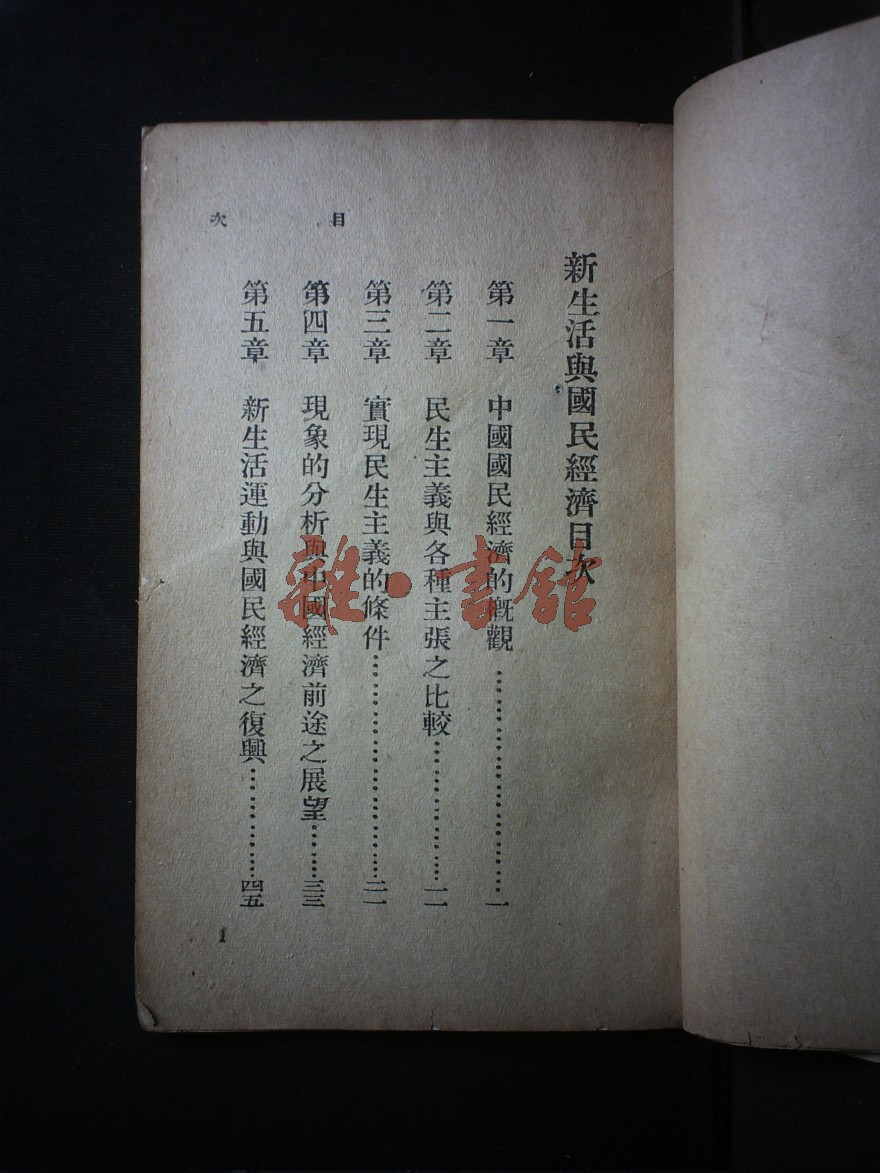 目次
新生活與國民經濟目次
第一章 中國國民經濟的概觀……………………一
第二章 民生主義與各種主張之比較……………一一
第三章 實現民生主義的條件……………………二一
第四章 現象的分析與中國經濟前途之展望……三三
第五章 新生活運動與國民經濟之復興…………四五
1
雜·書館